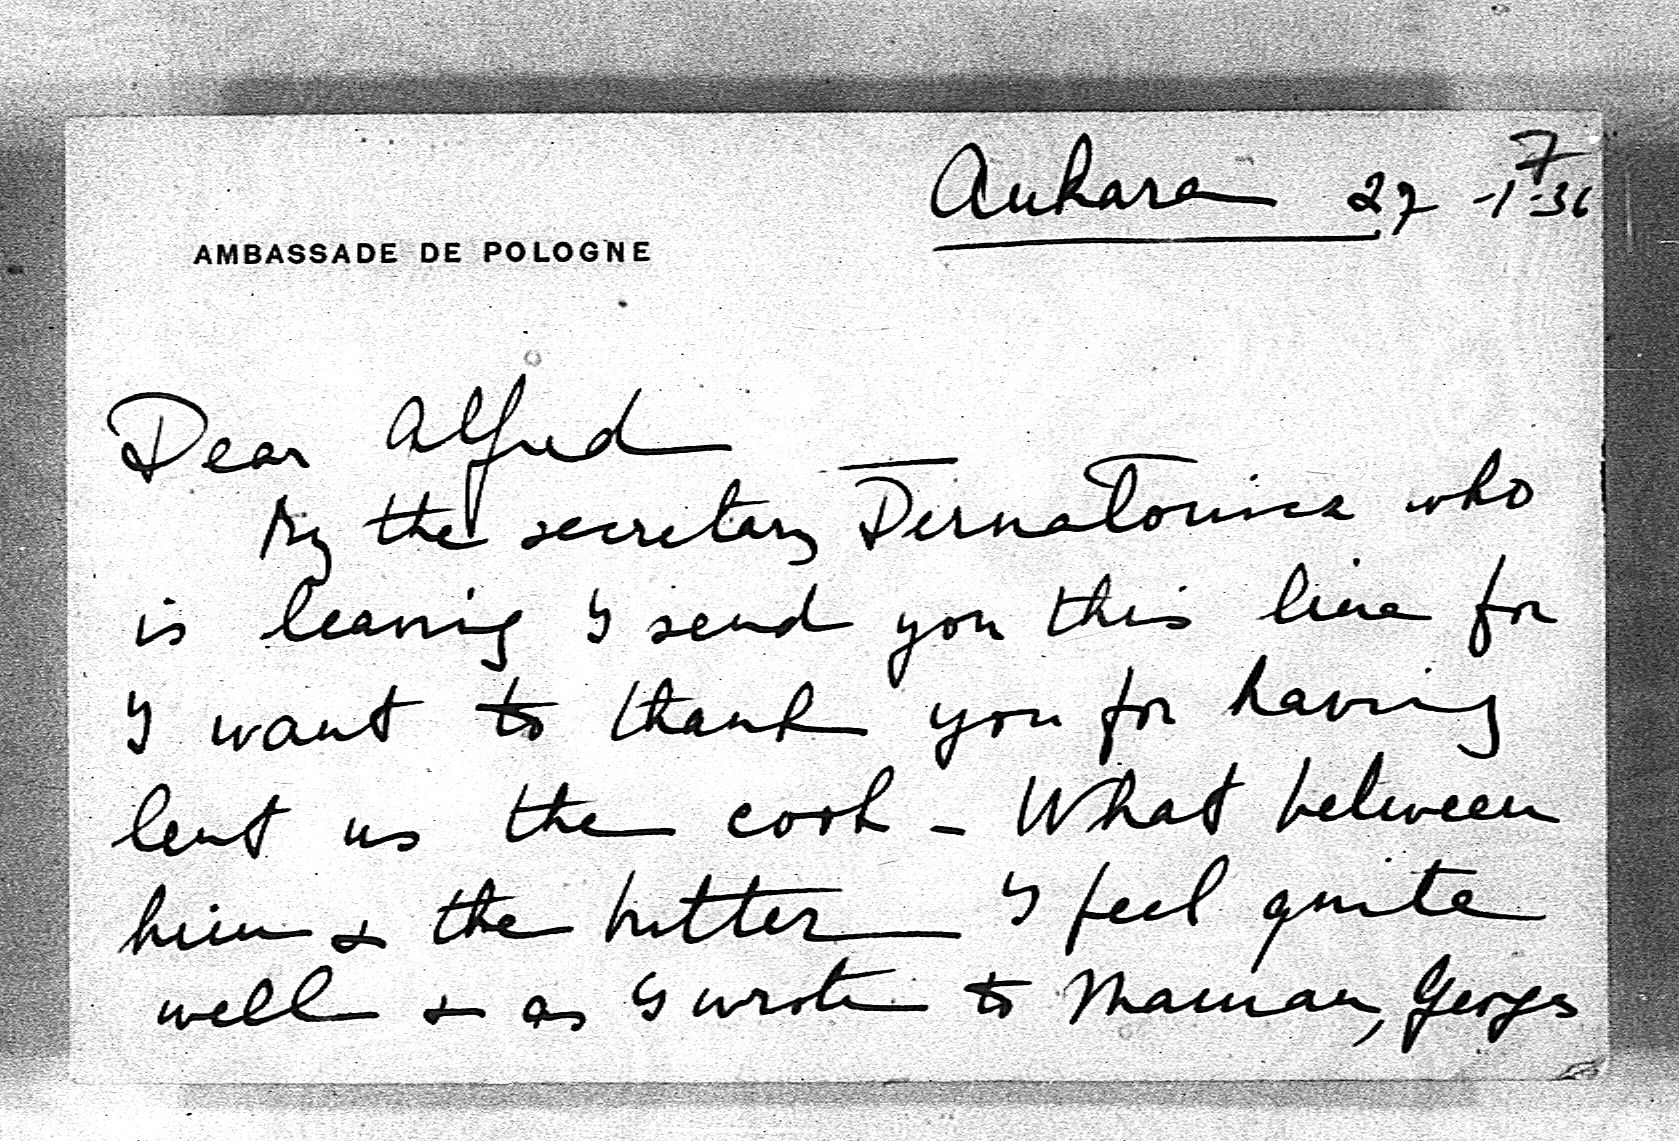 Ankara 27 -1-36
7
AMBASSADE DE POLOGNE
Dear Alfred
By the secretary who
is leaving I send you this line for
I want to thank you for having
lent us the cook - What between
him & the butter I feel quite
well & as I wrote to Maman, Georges